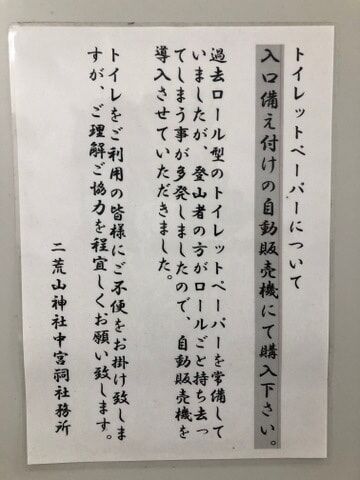 トイレットペーパーについて
入口備え付けの自動販売機にて購入下さい。
過去ロール型のトイレットペーパーを常備して
いましたが、登山者の方がロールごと持ち去っ
てしまう事が多発しましたので、自動販売機を
導入させていただきました。
トイレをご利用の皆様にご不便をお掛け致しま
すが、ご理解ご協力を程宜しくお願い致します。
二荒山神社中宮祠社務所